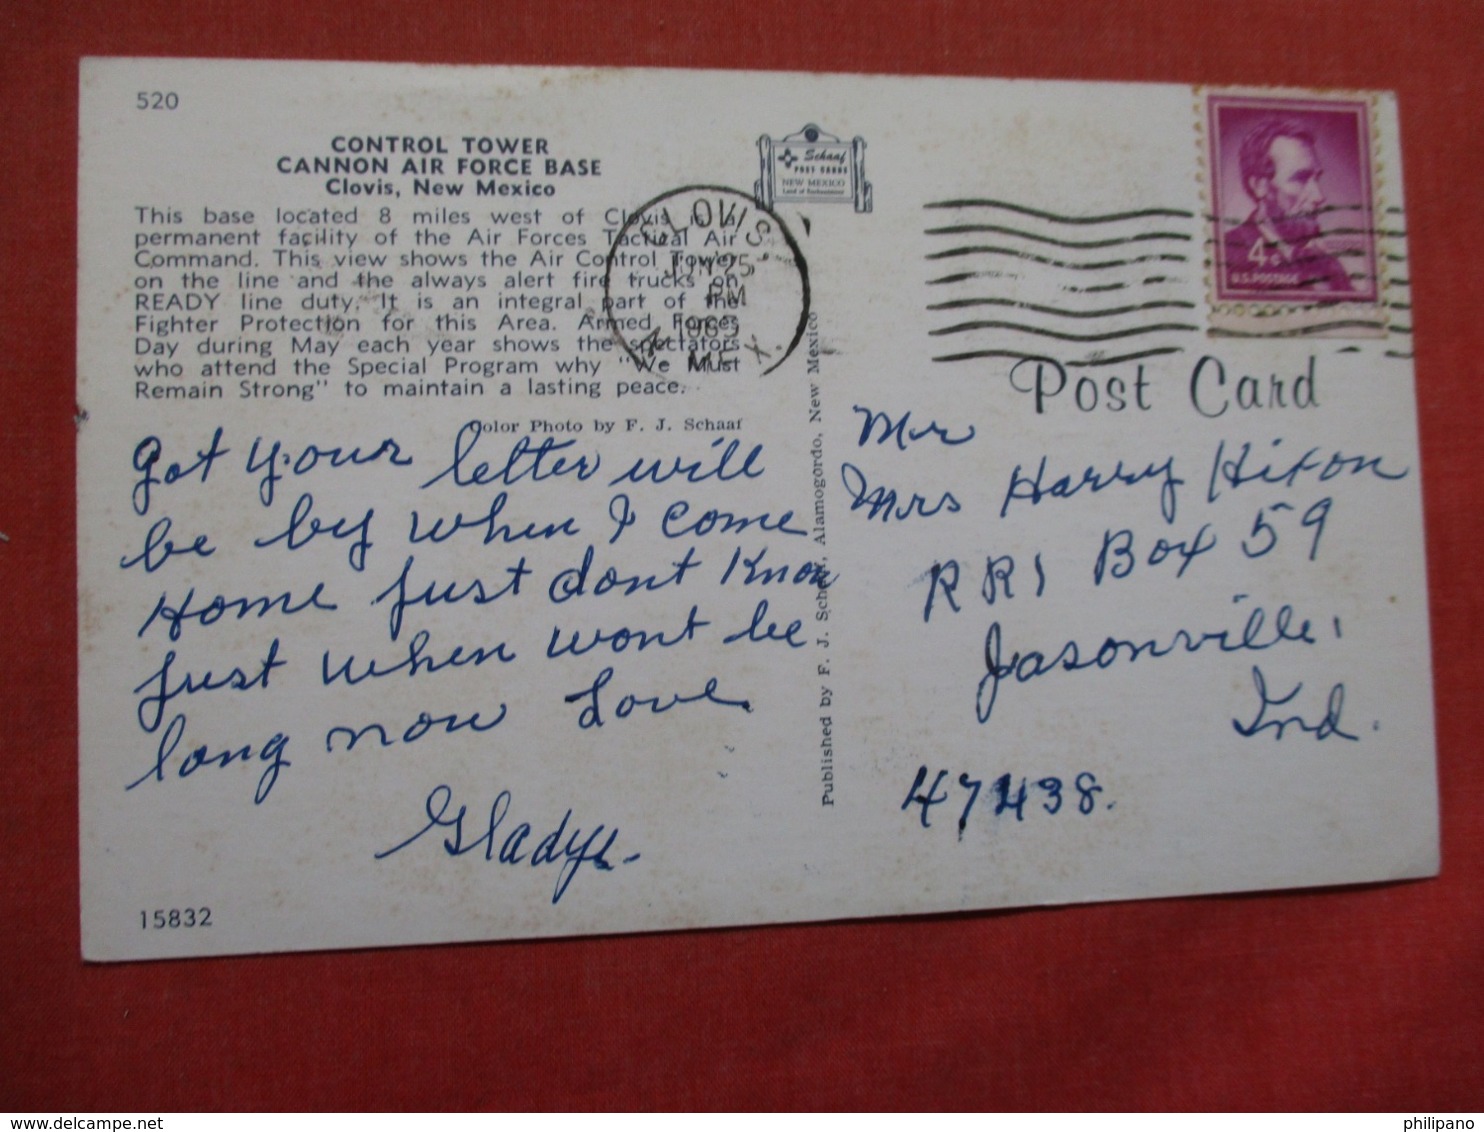 520
CONTROL TOWER
CANNON AIR FORCE BASE
Clovis, New Mexico
This base located 8 miles west of Clovis is a
permanent facility of the Air Forces Tactical Air
Command. This view shows the Air Control Tower
on the line and the always alert fire trucks on
READY line duty. It is an integral part of the
Fighter Protection for this Area. Armed Forces
Day during May each year shows the spectators
who attend the Special Program why "We Must
Remain Strong" to maintain a lasting peace.
Color Photo by F. J. Schaaf
Got your letter will
be by when I come
Home just dont Know
just when wont be
long now Love
Gladys.
15832
Schaaf
POST CARDS
NEW MEXICO
Land of Enchantment
CLOVIS,
JUN 25
PM
1963
N. MEX.
Published by F. J. Schaaf, Alamogordo, New Mexico
4¢
U.S. POSTAGE
Post Card
Mr
Mrs Harry Hixon
RR1 Box 59
Jasonville,
Ind.
47438.
delcampe.net
philipano